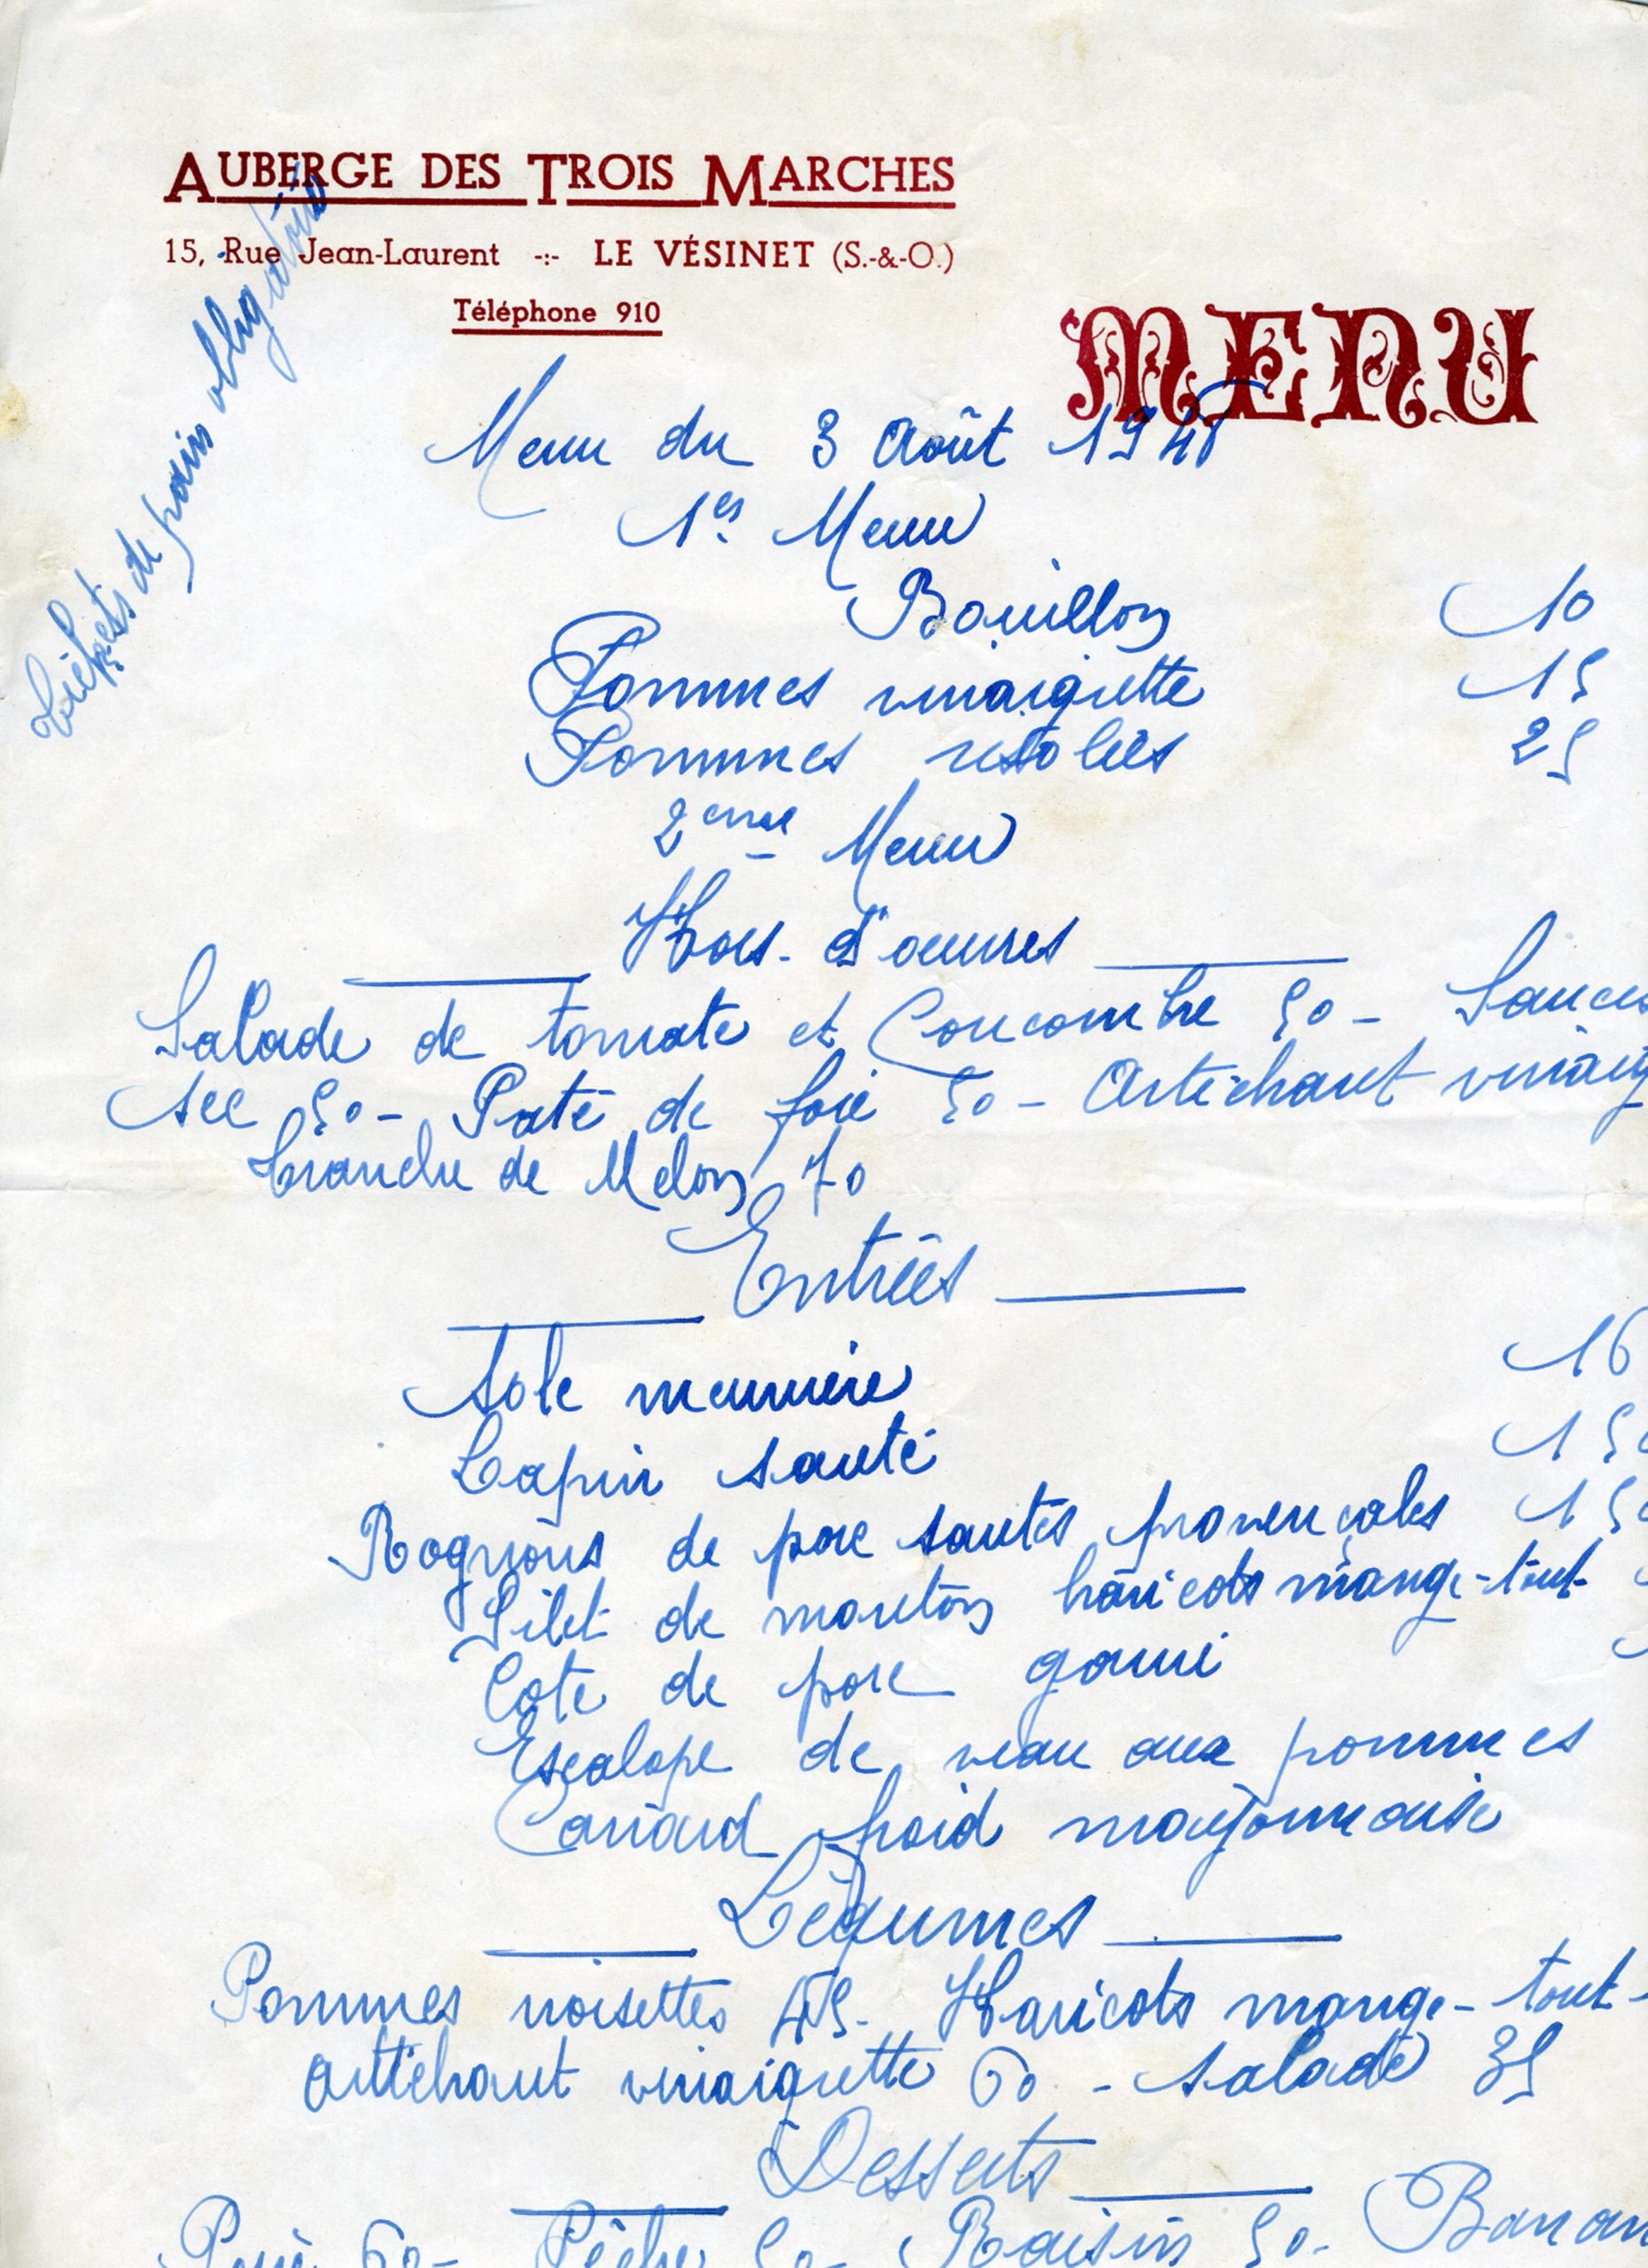 AUBERGE DES TROIS MARCHES
15, Rue Jean-Laurent -:- LE VÉSINET (S.-&-O.)
Téléphone 910
MENU
Tickets de pain obligatoire
Menu du 3 Août 194
1er Menu
Bouillon 10
Pommes vinaigrette 15
Pommes 25
2eme Menu
Hors-d'oeuvres
Salade de tomate et Concombre 50 -
sec 50 - Paté de foie 50 - Artichaut vinaig
tranche de Melon 70
Entrées
Sole meunière 16
Lapin sauté 15
Rognons de porc sautés provençales 15
Filet de mouton haricots mange-tout
Cote de porc garni
Escalope de veau aux pommes
Canard froid mayonnaise
Légumes
Pommes noisettes 45 - Haricots mange-tout -
Artichaut vinaigrette 60 - salade 35
Desserts
Poire 60 - Pêche 50 - Raisin 50 - Banan